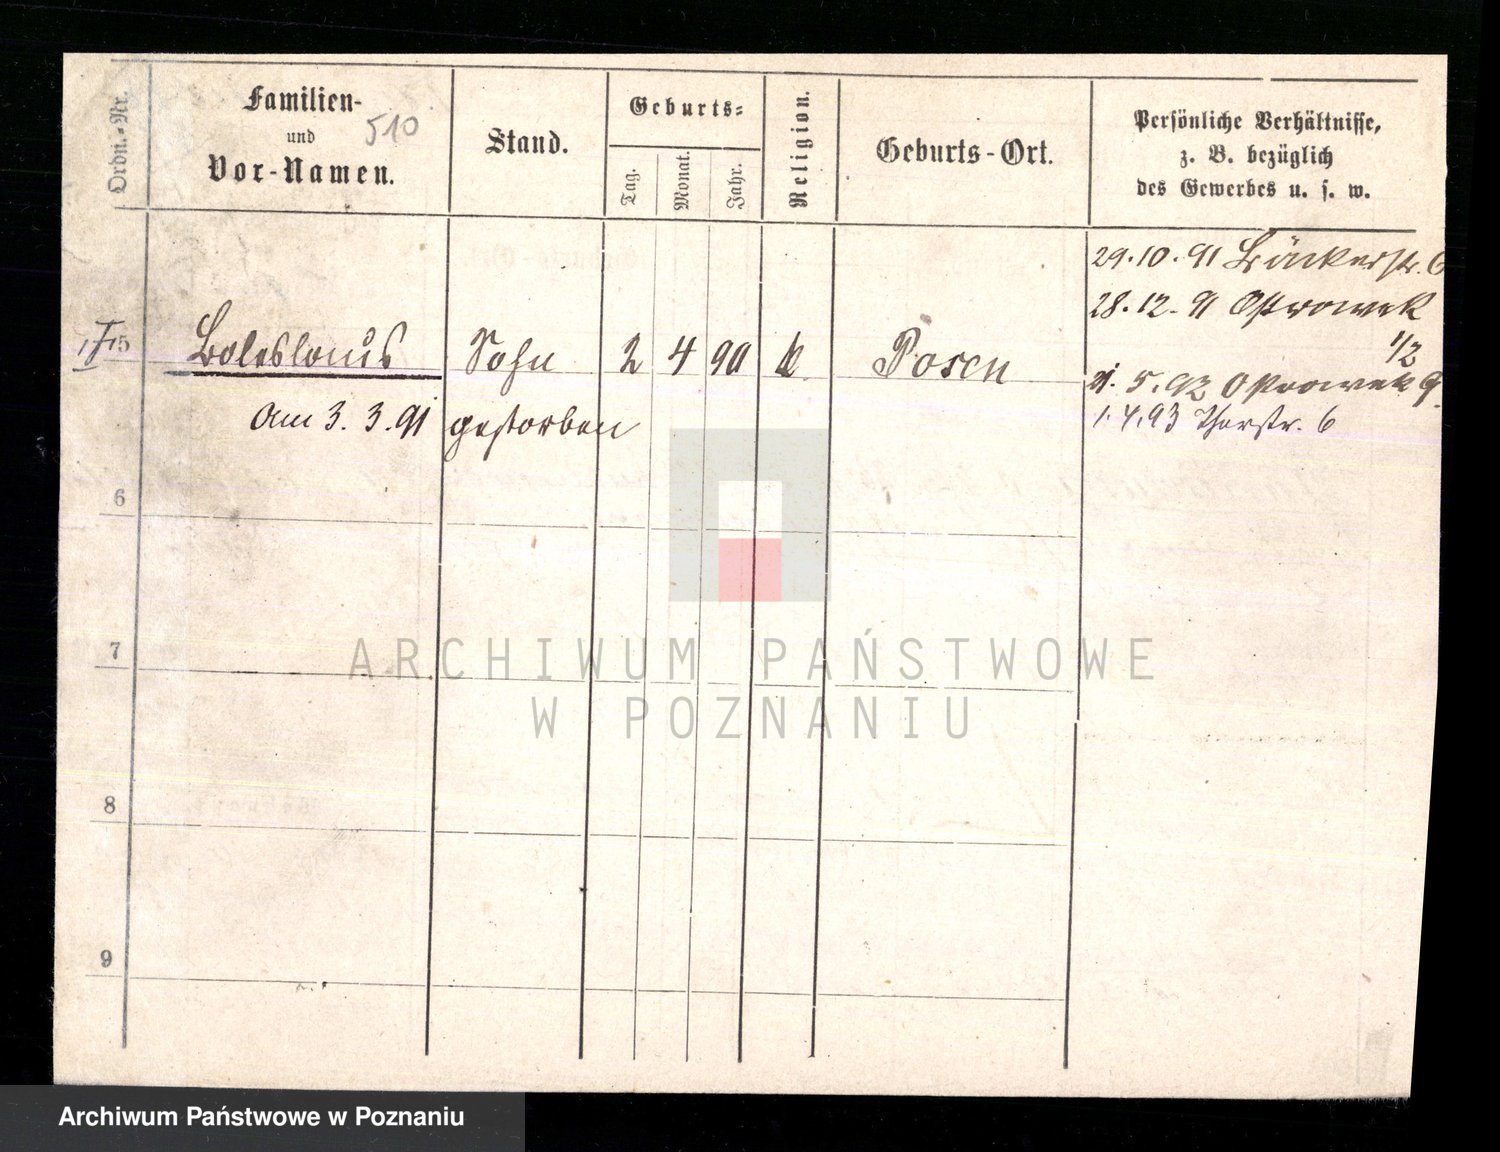 Ordn.-Nr.
Familien-
und
Vor-Namen.
510
Stand.
Geburts-
Tag.
Monat.
Jahr.
Religion.
Geburts-Ort.
Persönliche Verhältnisse,
z. B. bezüglich
des Gewerbes u. s. w.
29.10.91 Bäckerstr. 6
28.12.91 Ostrowek
1/2
5 Boleslaus Sohn 2 4 90 k Posen
5.92 Ostrowek 9.
am 3. 3. 91 gestorben
1.4.93 Thorstr. 6
6
7
8
9
ARCHIWUM PAŃSTWOWE
W POZNANIU
Archiwum Państwowe w Poznaniu